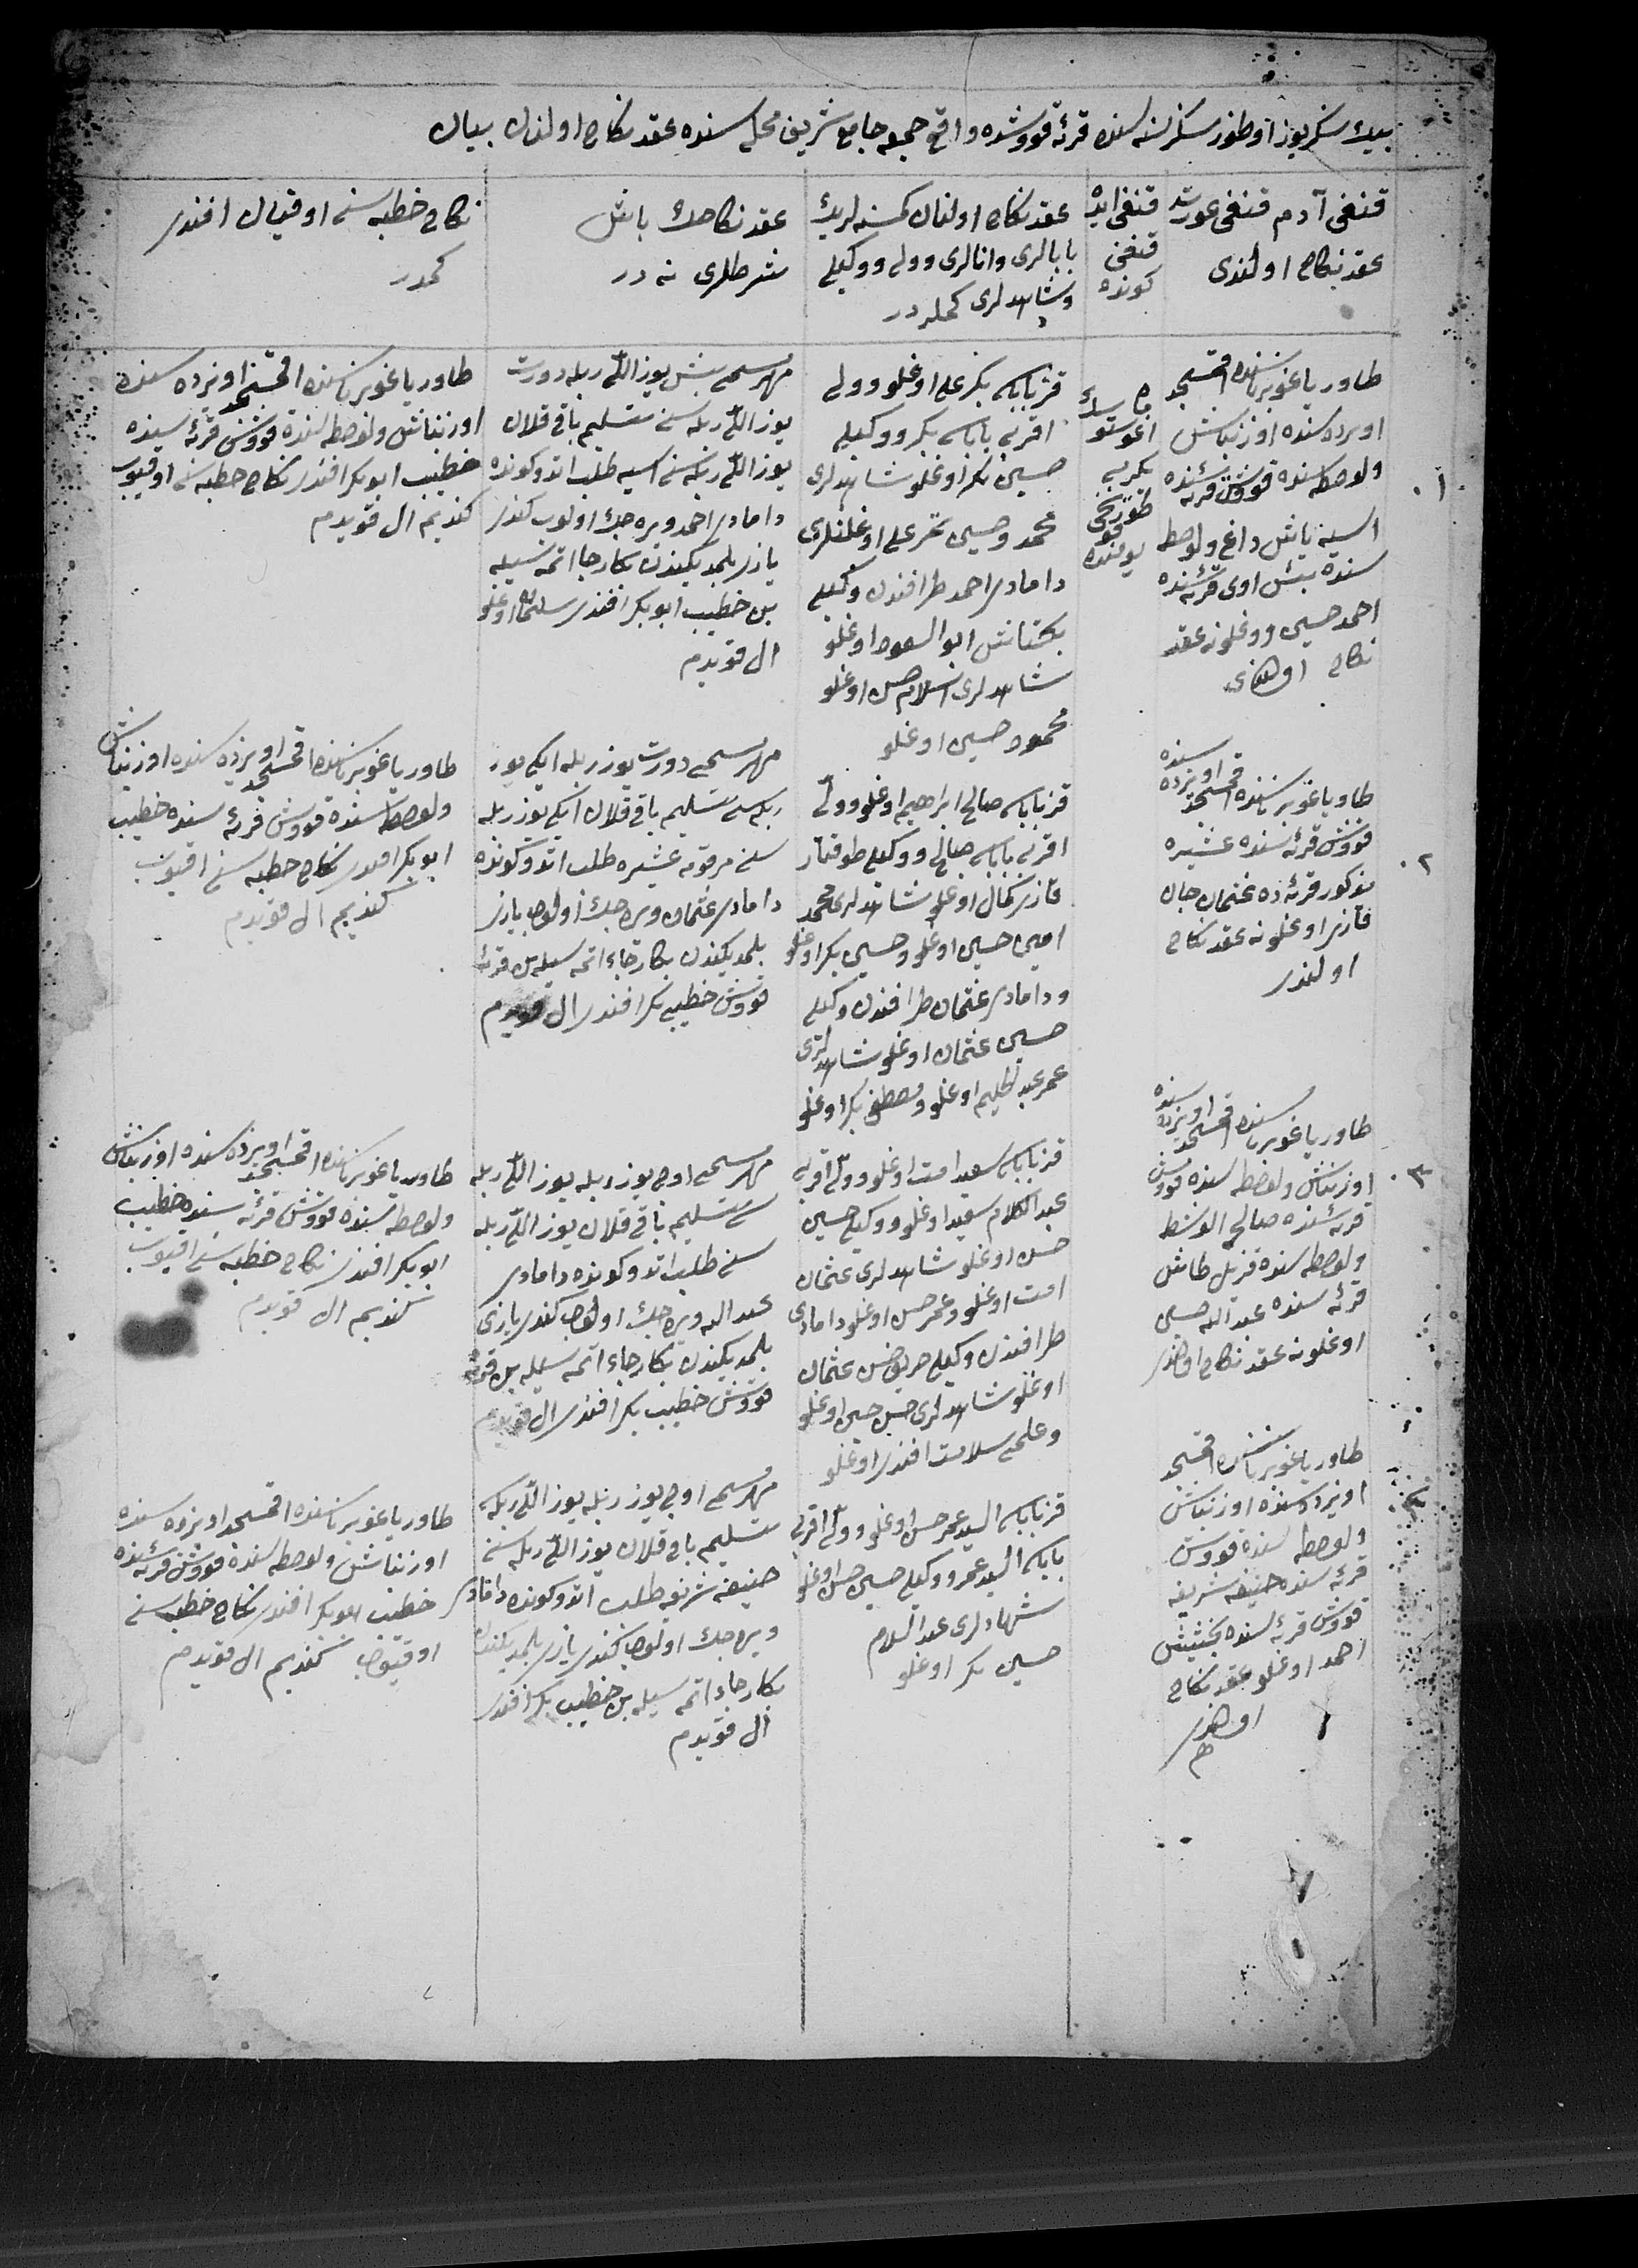 بيك سكز يوز اوطوز سكز سنه سنده قرئه قووشده واقع جمعه جامع شريف محله سنده عقد نكاح اولنان بيان
قنغى آدم قنغى عورته
عقد نكاح اولندى
قنغى ايده
قنغى
كونده
عقد نكاح اولنان كمسنه لرينك
بابالرى وانالرى وولى ووكيلى
وشاهدلرى كملردر
عقد نكاحك باشل
شرطلرى نه در
نكاح خطبه سنى اوقيان افندى
كمدر
١
طاوريا غوبرناسنده اقمسجد
اويزده سنده اوزنباش
ولوصطه سنده قووش قرئه سنده
اسيه ياش داغ ولوصط
سنده بش اوى قرئه سنده
احمد حسين اوغلونه عقد
نكاح اولندى
اغوستو
يكرمى
يومنده
قز باباسى بكر على اوغلو وولى
اقربه باباسى بكر ووكيلى
حسين بكر اوغلو شاهدلرى
محمد وحسين عمر على اوغللرى
دامادى احمد طرافندن وكيلى
بكتاش ابو السعود اوغلو
شاهدلرى اسلام حسن اوغلو
محمود حسين اوغلو
مهر مسمى بش يوز اللى ربله دورت
يوز اللى ربله سنى تسليم باقى قلان
يوز اللى ربله سنى اسيه طلب اتدوكونده
دامادى احمد ويره جك اولوب كندى
يازى بلمديكندن بكا رجا اتمه سيله
بن خطيب ابوبكر افندى سليمان اوغلو
ال قويدم
طاوريا غوبرناسنده اقمسجد اويزده سنده
اوزنباش ولوصطه سنده قووش قرئه سنده
خطيب ابوبكر افندى نكاح خطبه سنى اوقيوب
كنديم ال قويدم
٢
طاوريا غوبرناسنده اقمسجد اويزده سنده
قووش قرئه سنده عشيره
مذكور قرئه ده عثمان جان
غازى اوغلونه عقد نكاح
اولندى
قز باباسى صالح ابراهيم اوغلو وولى
اقربه باباسى صالح ووكيلى طوقتار
غازى كمال اوغلو شاهدلرى محمد
امين حسين اوغلو وحسين بكر اوغلو
ودامادى عثمان طرافندن وكيلى
حسين عثمان اوغلو شاهدلرى
عمر عبد اوغلو ومصطفى بكر اوغلو
مهر مسمى دورت يوز ربله ايكى يوز
ربله سنى تسليم باقى قلان ايكى يوز ربله
سنى مرقومه عشيره طلب اتدوكونده
دامادى عثمان ويره جك اولوب يازى
بلمديكندن بكا رجاء اتمه سيله بن قرئه
قووش خطيبى بكر افندى ال قويدم
طاوريا غوبرناسنده اقمسجد اويزده سنده اوزنباش
ولوصطه سنده قووش قرئه سنده خطيب
ابوبكر افندى نكاح خطبه سنى اوقيوب
كنديم ال قويدم
٣
طاوريا غوبرناسنده اقمسجد اويزده سنده
اوزنباش ولوصطه سنده قووش
قرئه سنده صالح
ولوصطه سنده قزيل طاش
قرئه سنده عبد الله حسين
اوغلونه عقد نكاح اولندى
قز باباسى سعيد امت اوغلو وولى اقربه
عبد السلام سعيد اوغلو ووكيلى حسين
حسن اوغلو شاهدلرى عثمان
امت اوغلو وعمر حسن اوغلو دامادى
طرافندن وكيلى عثمان
اوغلو شاهدلرى حسن حسين اوغلو
وعلى سلامت افندى اوغلو
مهر مسمى اوچ يوز ربله يوز اللى ربله
سنى تسليم باقى قلان يوز اللى ربله
سنى طلب اتدوكونده دامادى
عبد الله ويره جك اولوب كندى يازى
بلمديكندن بكا رجاء اتمه سيله بن قرئه
قووش خطيب بكر افندى ال قويدم
طاوريا غوبرناسنده اقمسجد اويزده سنده اوزنباش
ولوصطه سنده قووش قرئه سنده خطيب
ابوبكر افندى نكاح خطبه سنى اوقيوب
كنديم ال قويدم
٤
طاوريا غوبرناسنده اقمسجد
اويزده سنده اوزنباش
ولوصطه سنده قووش
قرئه سنده حنيفه شريفه
قووش قرئه سنده
احمد اوغلو عقد نكاح
اولندى
قز باباسى السيد عمر حسن اوغلو وولى اقربه
باباسى السيد عمر ووكيلى حسين حسن اوغلو
شهادلرى عبد السلام
حسين بكر اوغلو
مهر مسمى اوچ يوز ربله يوز اللى ربله
تسليم باقى قلان يوز اللى ربله سنى
حنيفه شريفه طلب اتدوكونده دامادى
ويره جك اولوب كندى يازى بلمديكندن
بكا رجاء اتمه سيله بن خطيب بكر افندى
ال قويدم
طاوريا غوبرناسنده اقمسجد اويزده سنده
اوزنباش ولوصطه سنده قووش قرئه سنده
خطيب ابوبكر افندى نكاح خطبه سنى
اوقيوب كنديم ال قويدم